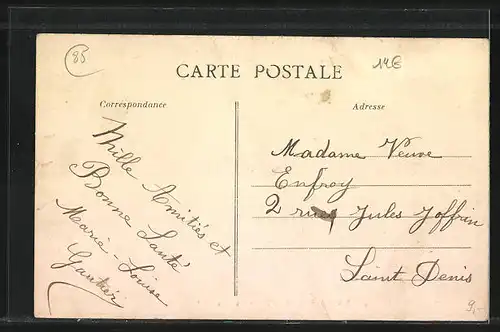 85
14€
CARTE POSTALE
Correspondance
Adresse
Mille Amitiés et
Bonne Santé
Marie-Louise
Gautier
Madame Veuve
Enfroy
2 rue Jules Joffrin
Saint Denis
9,-